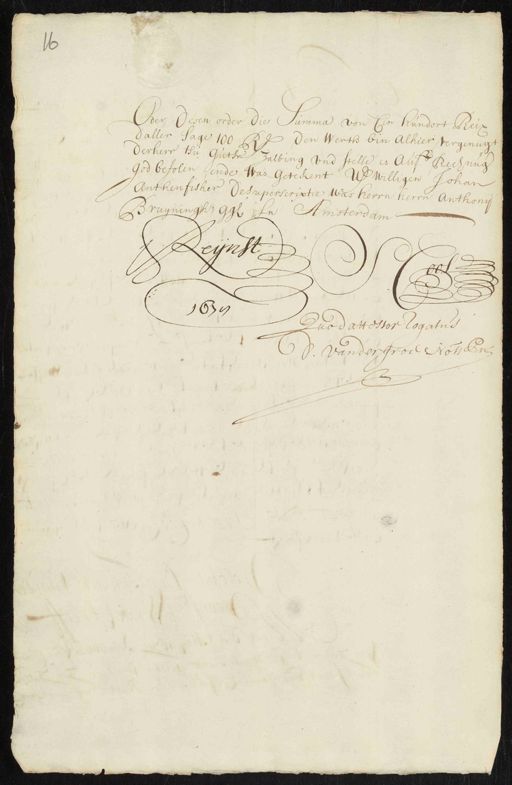 16
Oder dezen order dies Summa von Ein hundert Reix
daller Sage 100 Rd den Werth bin Alhier vergenugt
derherr thu Guthe Zalbing und stelle es Auff Rechnung
god befolen ende Was Getekent UE Willigen Johan
Anthenfisher de superscriptie Was herrn herrn Anthony
Bruyningh In Amsterdam
Reijnst
1639
Quod attestor Rogatus
Nots